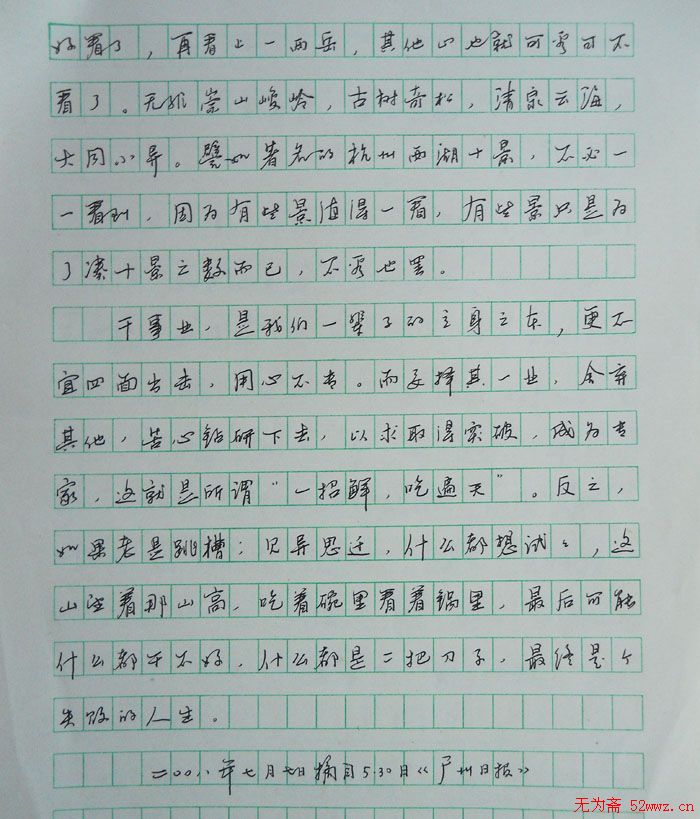 好看了，再看上一两岳，其他山也就可看可不
看了。无非崇山峻岭，古树奇松，清泉云海，
大同小异。譬如著名的杭州西湖十景，不必一
一看到，因为有些景值得一看，有些景只是为
了凑十景之数而已，不看也罢。
干事业，是我们一辈子的立身之本，更不
宜四面出击，用心不专。而要择其一业，舍弃
其他，苦心钻研下去，以求取得突破，成为专
家，这就是所谓“一招鲜，吃遍天”。反之，
如果老是跳槽；见异思迁，什么都想试々，这
山望着那山高，吃着碗里看着锅里，最后可能
什么都干不好，什么都是二把刀子，最终是个
失败的人生。
年七月七日摘自5.30日《广州日报》
无为斋 52wwz.cn